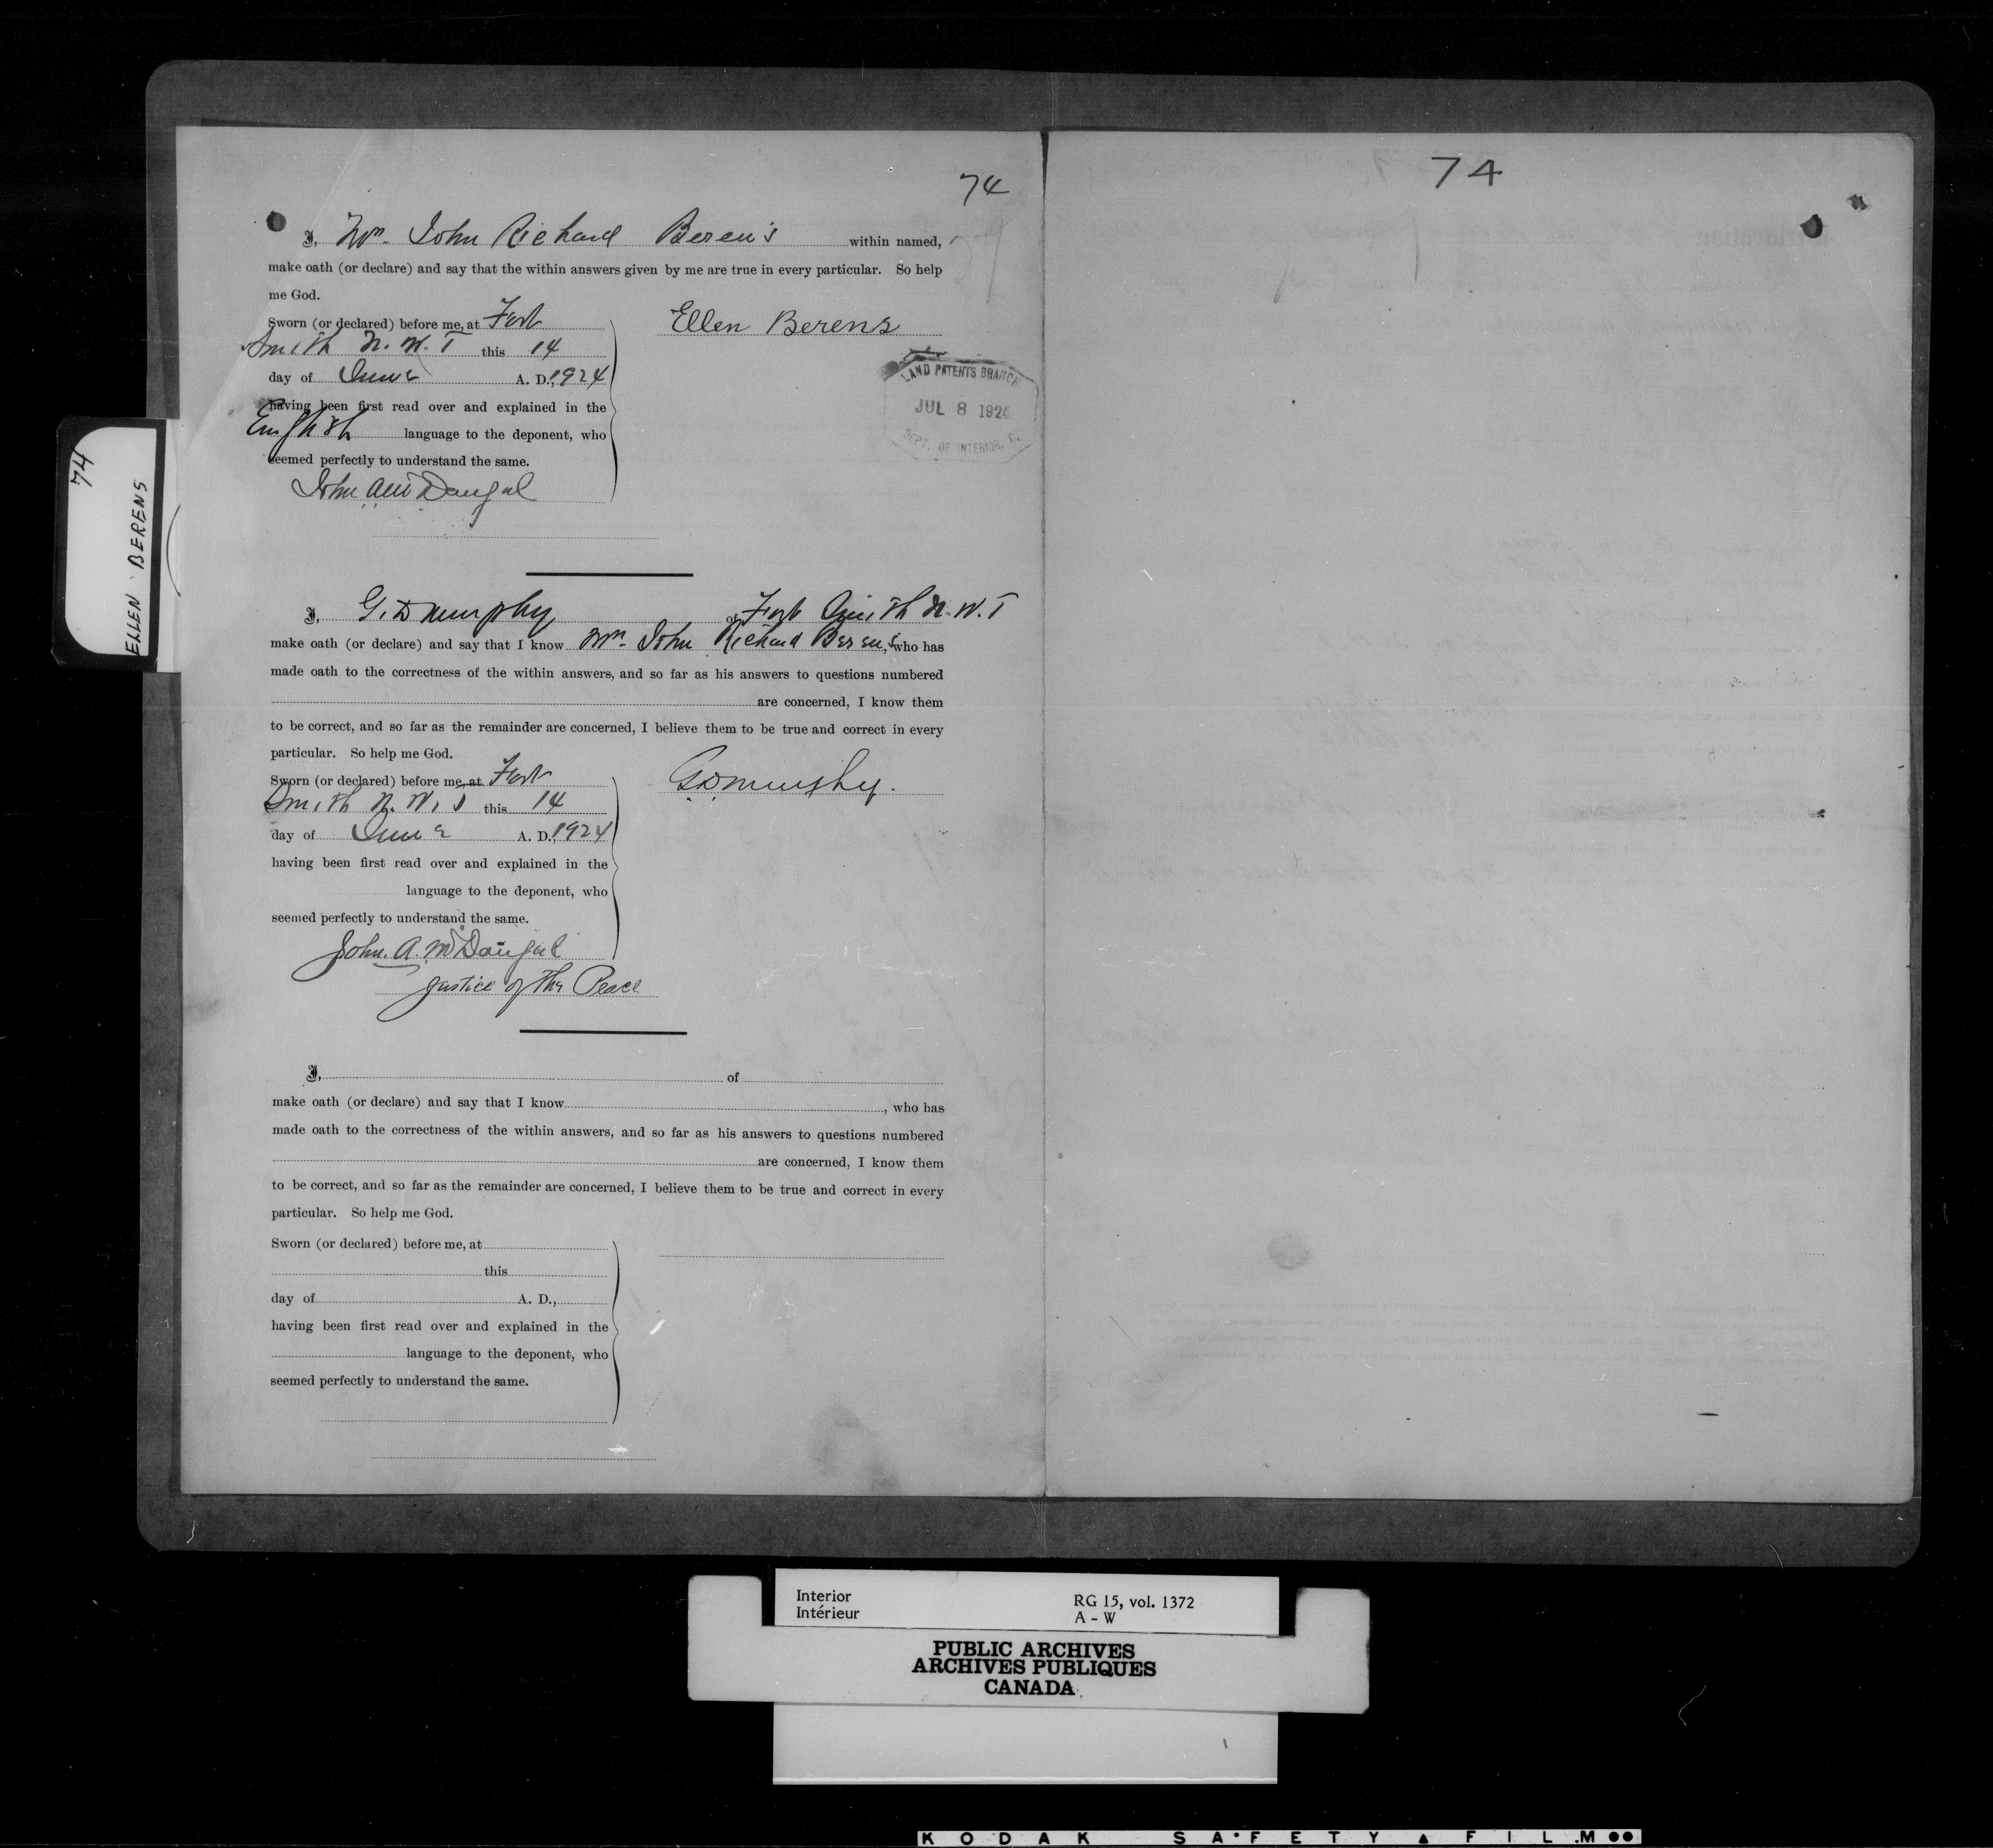 74
I, Mrs. John Richard Berens within named,
make oath (or declare) and say that the within answers given by me are true in every particular. So help
me God.
Sworn (or declared) before me, at Fort
Smith N.W.T this 14
day of June A. D., 1924
having been first read over and explained in the
English language to the deponent, who
seemed perfectly to understand the same.
John A McDougal
Ellen Berens
LAND PATENTS BRANCH
JUL 8 1924
DEPT. OF INTERIOR.
74
ELLEN BERENS
I, G. D Murphy of Fort Smith N.W.T
make oath (or declare) and say that I know Mrs. John Richard Berens, who has
made oath to the correctness of the within answers, and so far as his answers to questions numbered
are concerned, I know them
to be correct, and so far as the remainder are concerned, I believe them to be true and correct in every
particular. So help me God.
Sworn (or declared) before me, at Fort
Smith N.W.T this 14
day of June A. D., 1924
having been first read over and explained in the
language to the deponent, who
seemed perfectly to understand the same.
John. A. McDougal
Justice of the Peace
GDMurphy.
I, of
make oath (or declare) and say that I know , who has
made oath to the correctness of the within answers, and so far as his answers to questions numbered
are concerned, I know them
to be correct, and so far as the remainder are concerned, I believe them to be true and correct in every
particular. So help me God.
Sworn (or declared) before me, at
this
day of A. D.,
having been first read over and explained in the
language to the deponent, who
seemed perfectly to understand the same.
74
Interior
Intérieur
RG 15, vol. 1372
A - W
PUBLIC ARCHIVES
ARCHIVES PUBLIQUES
CANADA
KODAK SAFETY FILM